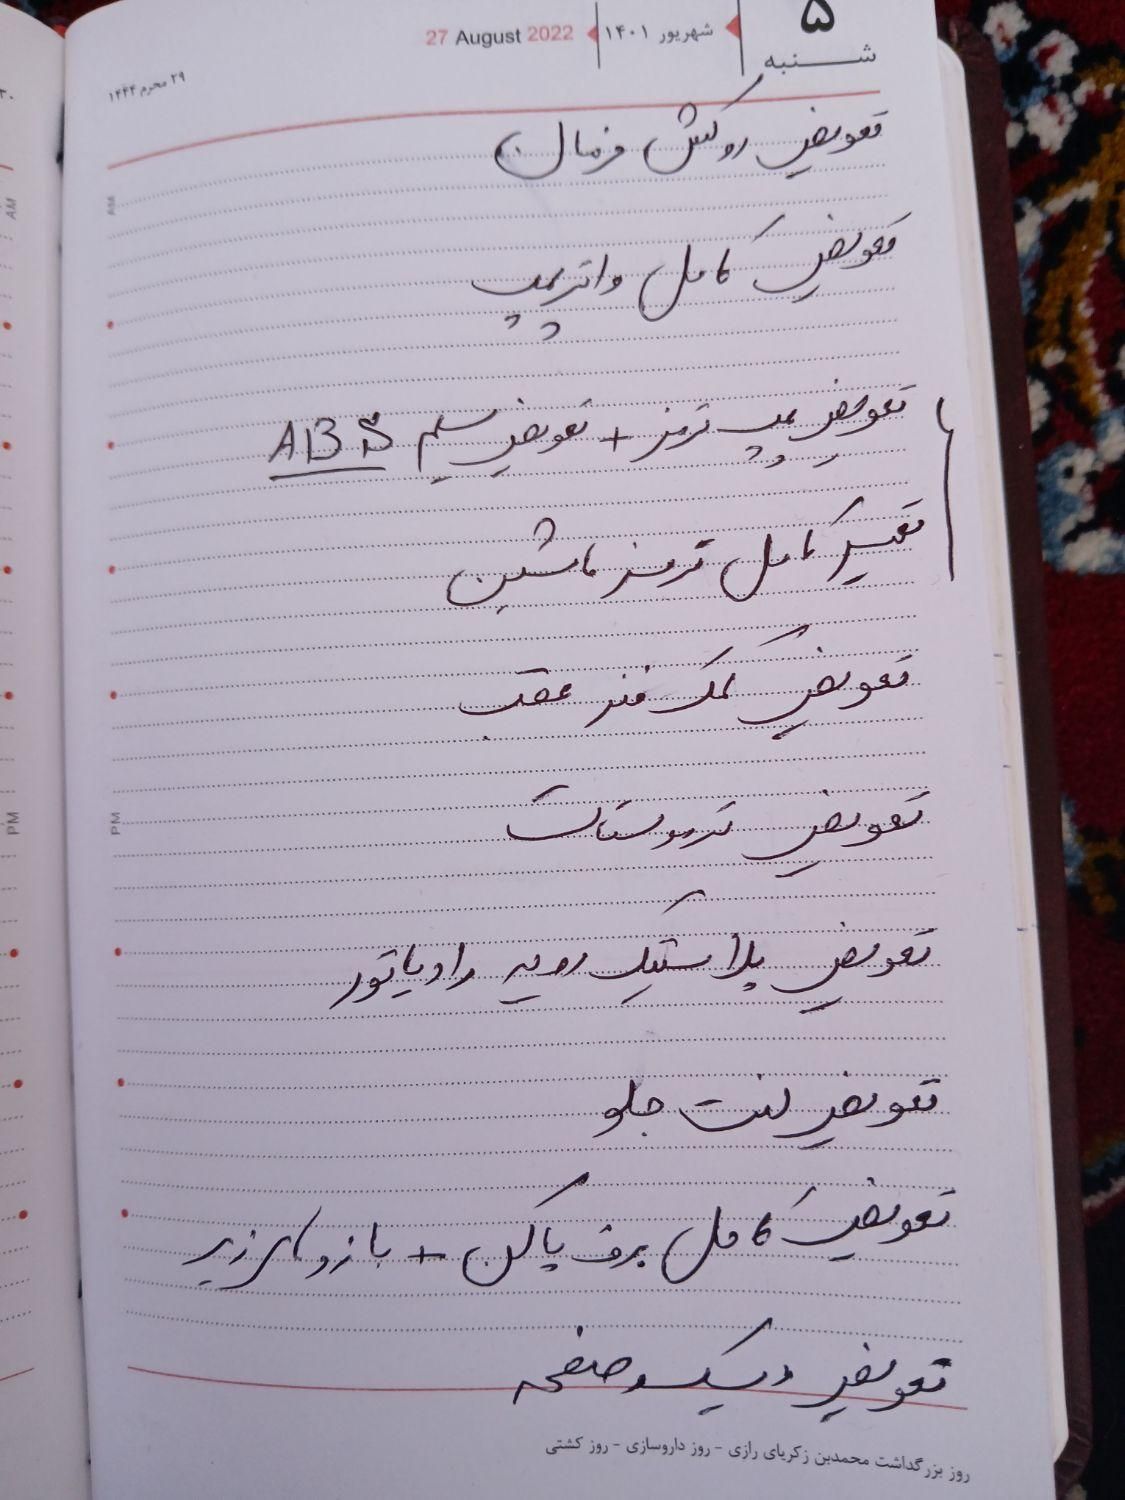 ۵
شنبه
شهریور ۱۴۰۱
27 August 2022
۲۹ محرم ۱۴۴۴
تعویض روکش فرمان
AM
AM
تعویض کامل واترپمپ
تعویض پمپ ترمز + تعویض سیم ABS
تعمیر کامل ترمز ماشین
تعویض کمک فنر عقب
تعویض ترموستات
PM
PM
تعویض پلاستیک رویه رادیاتور
تعویض لنت جلو
تعویض کامل برف پاکن + بازوهای زیر
تعویض دیسک و صفحه
روز بزرگداشت محمدبن زکریای رازی - روز داروسازی - روز کشتی